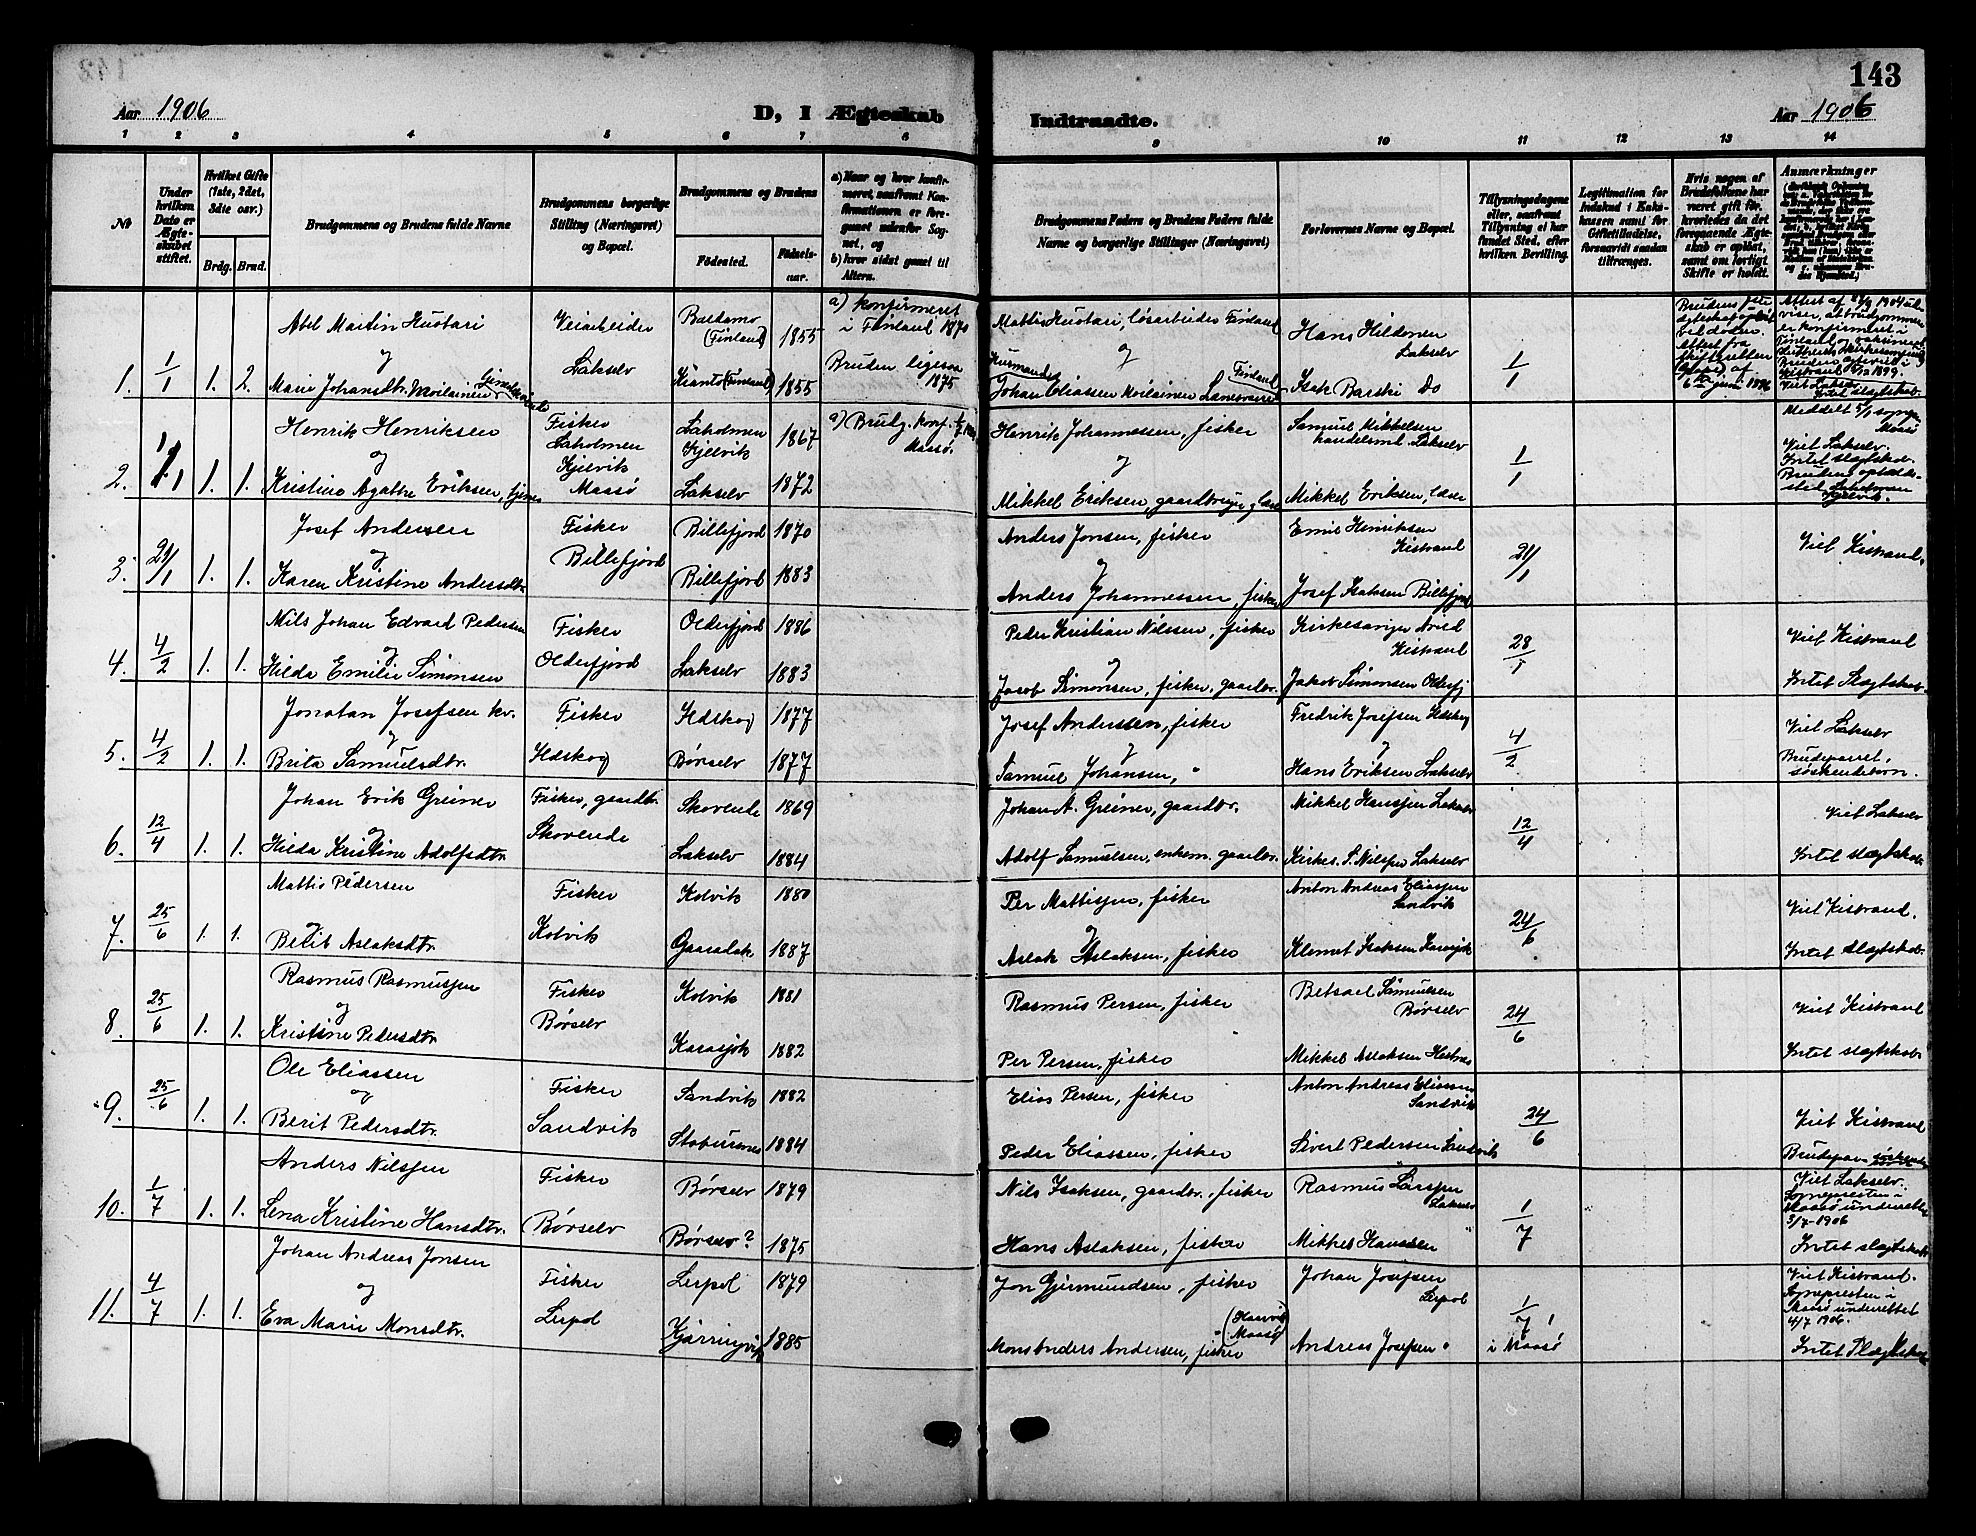 143
Aar 1906
D, I Ægteskab Indtraadte.
Aar 1906
1 2 3 4 5 6 7 8 9 10 11 12 13 14
№
Under hvilken Dato er Ægteskabet stiftet.
Hvilket Gifte (1ste, 2det, 3die osv.)
Brdg. Brud.
Brudgommens og Brudens fulde Navne
Brudgommens borgerlige Stilling (Næringsvei) og Bopæl.
Brudgommens og Brudens
Fødested.
Fødselsaar.
a) Naar og hvor konfirmeret, saafremt Konfirmationen er foregaaet udenfor Sognet, og
b) hvor sidst gaaet til Alters.
Brudgommens Faders og Brudens Faders fulde Navne og borgerlige Stillinger (Næringsvei)
Forlovernes Navne og Bopæl.
Tillysningsdagene eller, saafremt Tillysning ei har fundet Sted, efter hvilken Bevilling.
Legitimation for Indskud i Enkekassen samt for Giftetilladelse, forsaavidt saadan tiltrænges.
Hvis nogen af Brudefolkene har været gift før, hvorledes da det foregaaende Ægteskab er opløst, samt om lovligt Skifte er holdt.
Anmærkninger
1. 1/1 1. 2.
Abel Martin Kustari
og
Marie Johansdtr. Moilainen
Veiarbeider
Lakselv
(Finland) 1855
(Finland) 1855
a) konfirmeret i Finland 1870
Bruden ligesaa 1875
Mattis Kustari, løsarbeider Finland
og
Johan Eliassen Moilainen
Finland
Hans Hildonen
Lakselv
Isak Barski do
1/1
Viet Lakselv
Intet slægtskab.
2. 1/1 1. 1.
Henrik Henriksen
og
Kristine Agathe Eriksen,
Fisker
Laholmen
Kjelvik
Maasø
Laholmen
Kjelvik 1867
Lakselv 1872
a) Brudg. konf.
Maasø.
Henrik Johannessen, fisker
og
Mikkel Eriksen, gaardbruger
Samuel Mikkelsen
handelsmd. Lakselv
Mikkel Eriksen,
1/1
Viet Lakselv.
Intet slægtskab.
3. 21/1 1. 1.
Josef Andersen
og
Karen Kristine Andersdtr.
Fisker
Billefjord
Billefjord 1870
Billefjord 1883
Anders Jonsen, fisker
og
Anders Johannessen, fisker
Emil Henriksen
Kistrand
Josef Isaksen Billefjord
21/1
Viet Kistrand.
4. 4/2 1. 1.
Nils Johan Edvard Pedersen
og
Hilda Emilie Simonsen
Fisker
Olderfjord
Olderfjord 1886
Lakselv 1883
Peder Kristian Nilssen, fisker
og
Jacob Simonsen, fisker, gaardbr.
Kirkesanger Arild
Kistrand
Jakob Simonsen Olderfj
28/1
Viet Kistrand
Intet Slægtskab.
5. 4/2 1. 1.
Jonatan Josefsen kv.
og
Brita Samuelsdtr.
Fisker
Ildskog
Ildskog 1877
Børselv 1877
Josef Andersen, fisker
og
Samuel Johansen, "
Fredrik Josefsen Ildskog
og
Hans Eriksen Lakselv
4/2
Viet Lakselv
Brudeparret,
søskendebørn.
6. 12/4 1. 1.
Johan Erik Greiner
og
Hilda Kristine Adolfsdtr.
Fisker, gaardbr.
Skovende
Skovende 1869
Lakselv 1884
Johan A. Greiner, gaardbr.
Adolf Samuelsen, enkem. gaardbr.
Mikkel Hanssen Lakselv
Kirkes. S. Nilssen Lakselv
12/4
Viet Lakselv
Intet slægtskab.
7. 25/6 1. 1.
Mattis Pedersen
og
Berit Aslaksdtr.
Fisker
Kolvik
Kolvik 1880
1887
Per Mattissen, fisker
og
Aslak Aslaksen, fisker
Anton Andreas Eliassen
Sandvik
Klemet Isaksen Karasjok
24/6
Viet Kistrand.
Intet slægtskab.
8. 25/6 1. 1.
Rasmus Rasmussen
og
Kristine Pedersdtr.
Fisker
Børselv
Kolvik 1881
Karasjok 1882
Rasmus Persen, fisker
Per Persen, fisker
Betsael Samuelsen
Børselv
Mikkel Aslaksen Hestnes
24/6
Viet Kistrand
Intet slægtskab.
9. 25/6 1. 1.
Ole Eliassen
og
Berit Pedersdtr.
Fisker
Sandvik
Sandvik 1882
Stabursnes 1884
Elias Persen, fisker
Peder Eliassen, fisker
Anton Andreas Eliassen
Sandvik
Sivert Pedersen Sandvik
24/6
Viet Kistrand
10. 1/7 1. 1.
Anders Nilssen
Lena Kristine Hansdtr.
Fisker
Børselv
Børselv 1879
Børselv? 1875
Nils Isaksen, gaardbr., fisker
Hans Aslaksen, fisker
Rasmus Larssen
Lakselv
Mikkel Hanssen "
1/7
Viet Lakselv.
Sognepresten i
Maasø underettet
3/7-1906
Intet slægtskab
11. 4/7 1. 1.
Johan Andreas Jonsen
og
Eva Marie Monsdtr.
Fisker
Lerpol
Lerpol 1879
Kjærringvik 1885
Jon Gjermundsen, fisker
Mons Anders Andersen, fisker
(Havvik Maasø)
Johan Josefsen
Lerpol
Andreas Josefsen "
1/7
i Maasø
Viet Kistrand.
Sognepresten i
Maasø underettet
4/7 1906.
Intet Slægtskab